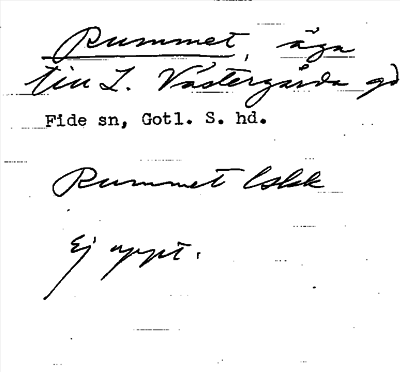 Rummet, äga
till L. Västergårda gd
Fide sn, Gotl. S. hd.
Rummet
Ej uppt.